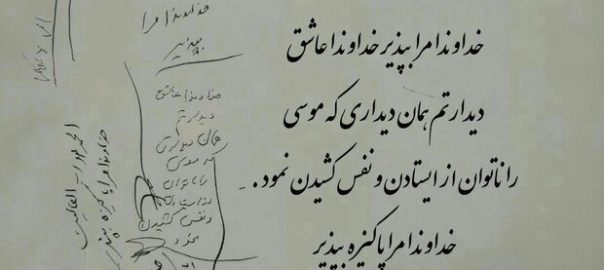 خداوندا مرا بپذیر خداوندا عاشق
دیدارتم همان دیداری که موسی
را ناتوان از ایستادن و نفس کشیدن نمود .
خداوندا مرا پاکیزه بپذیر
خداوندا مرا
بپذیر
خداوندا عاشق
دیدارتم
همان دیداری
که موسی
را ناتوان
نفس کشیدن
نمود
الحمدلله رب العالمین
خداوندا مرا پاکیزه بپذیر